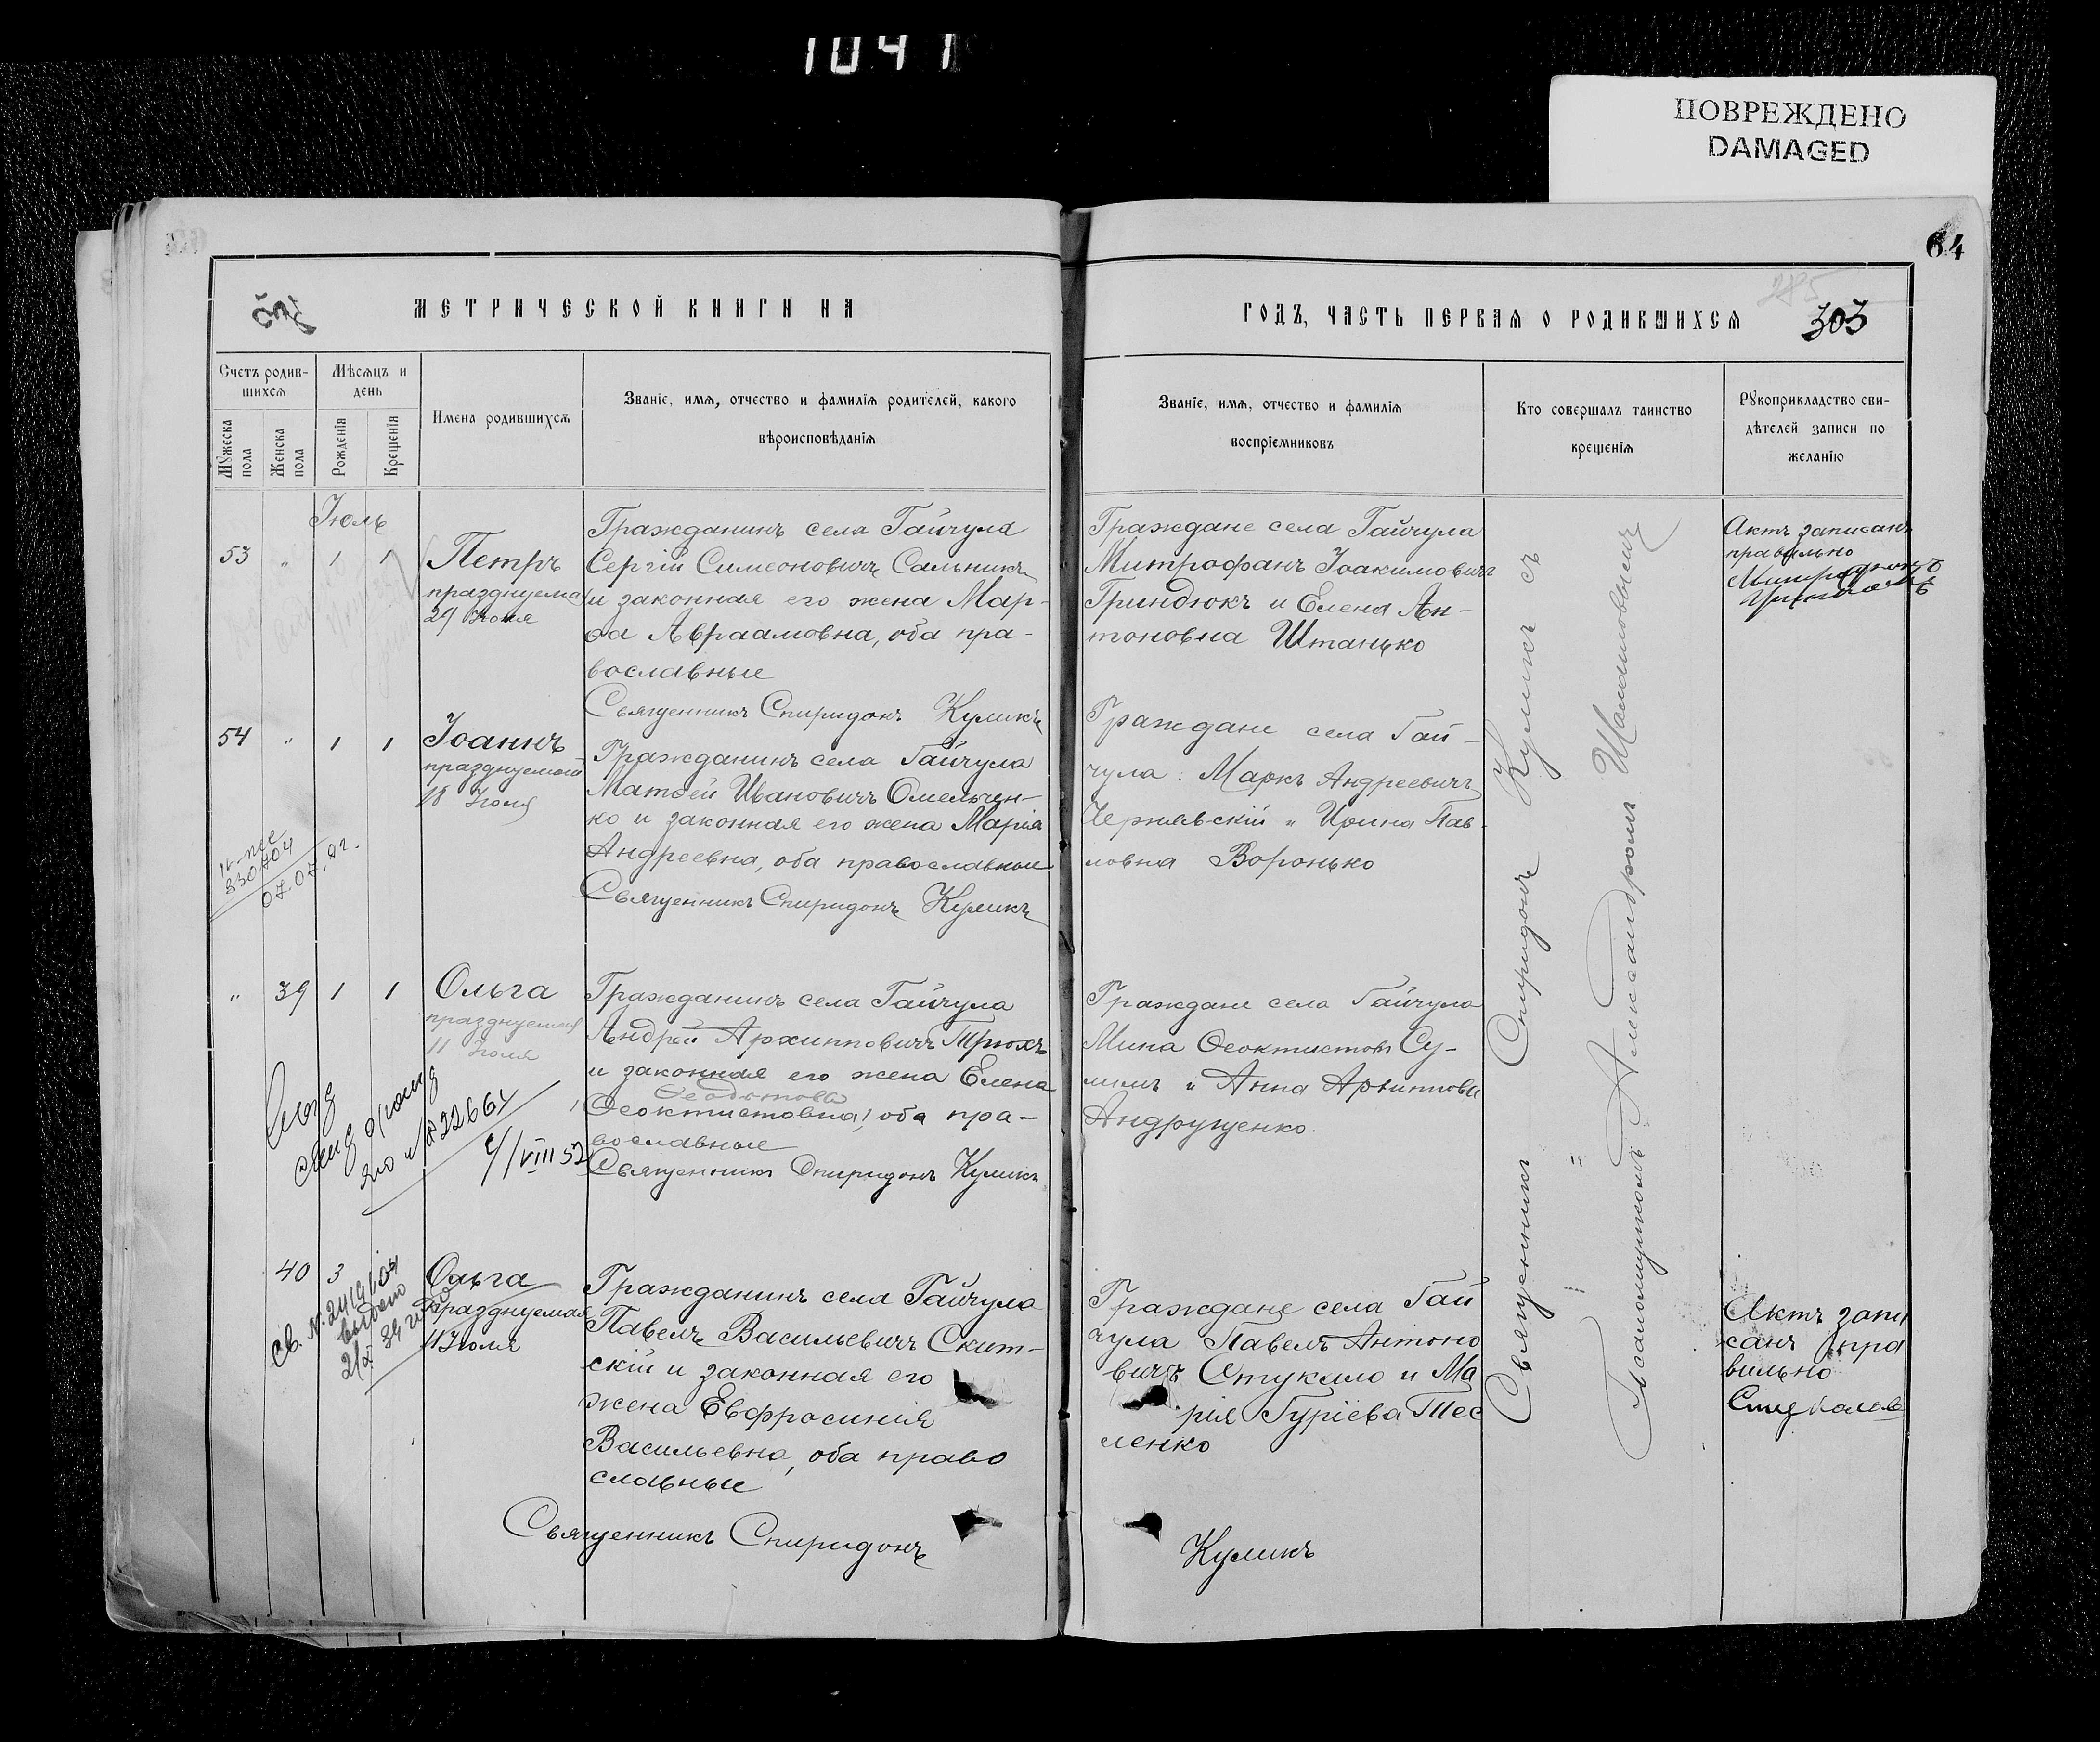 1041
ПОВРЕЖДЕНО
DAMAGED
64
МЕТРИЧЕСКОЙ КНИГИ НА
ГОДЪ, ЧАСТЬ ПЕРВАЯ О РОДИВШИХСЯ
285
303
Счетъ родив-
шихся
Мѣсяцъ и
день
Мужеска
пола
Женска
пола
Рожденія
Крещенія
Имена родившихся
Званіе, имя, отчество и фамилія родителей, какого
вѣроисповѣданія
Званіе, имя, отчество и фамилія
воспріемниковъ
Кто совершалъ таинство
крещенія
Рукоприкладство сви-
дѣтелей записи по
желанію
Іюль
53 " 1 1
Петръ
празднуемый
29 Іюня
Гражданинъ села Гайчула
Сергій Симеоновичъ Сальникъ
и законная его жена Мар-
ѳа Авраамовна, оба пра-
вославные
Священникъ Спиридонъ Куликъ
Граждане села Гайчула
Митрофанъ Іоакимовичъ
Гриндюкъ и Елена Ан-
тоновна Штанько
Актъ записанъ
правильно
54 " 1 1
Іоаннъ
празднуемый
18 Іюня
Гражданинъ села Гайчула
Матѳей Ивановичъ Омельчен-
ко и законная его жена Марія
Андреевна, оба православные
Священникъ Спиридонъ Куликъ
Граждане села Гай-
чула: Маркъ Андреевичъ
Чернявскій и Ирина Пав-
ловна Воронько
330704
07.07.
" 39 1 1
Ольга
празднуемая
11 Іюля
Гражданинъ села Гайчула
Андрей Архипповичъ Трюхъ
и законная его жена Елена
Ѳеодотова
Ѳеоктистовна, оба пра-
вославные
Священникъ Спиридонъ Куликъ
Граждане села Гайчула
Мина Ѳеоктистовъ Су-
лимъ и Анна Архиппова
Андрущенко.
№ 22664
4/VIII 52
40 3
Ольга
празднуемая
11 Іюля
Гражданинъ села Гайчула
Павелъ Васильевичъ Скит-
скій и законная его
жена Евфросинія
Васильевна, оба право
славные
Священникъ Спиридонъ Куликъ
Граждане села Гай
чула Павелъ Антоно
вичъ Стукало и Ма
рія Гуріева Тес
ленко
Актъ запи
санъ пра
вильно
Священникъ Спиридонъ Куликъ съ
Псаломщикомъ Александромъ